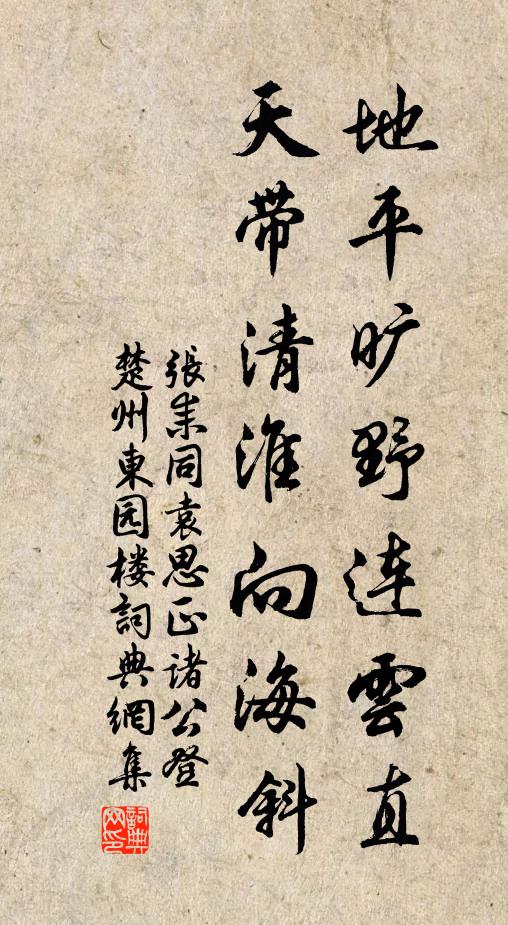 地平旷野连雲直
天带清淮向海斜
張耒同袁思正諸公登
楚州東园楼詞典網集
詞典网印